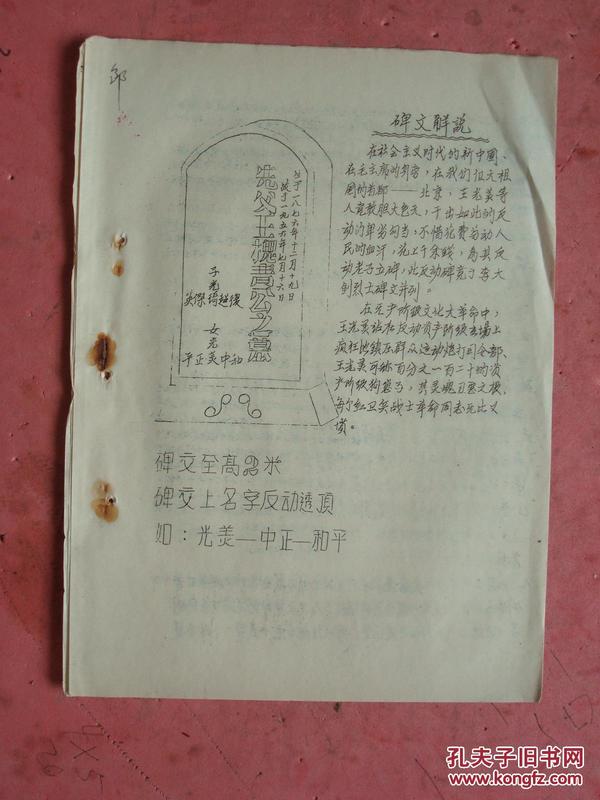 邹
碑文解說
在社会主义时代的新中国、
在毛主席的身旁，在我们伟大祖
国的首都——北京，王光美等
人竟敢胆大包天，干出如此的反
动的卑劣勾当，不惜花费劳动人
民的血汗，花上千余钱，为其反
动老子立碑，此反动碑竟与李大
钊烈士碑文并列。
在无产阶级文化大革命中，
王光美站在反动资产阶级立场上
疯狂地镇压群众运动炮打司令部、
王光美可称百分之一百二十的资
产阶级
生于一八七六年十二月十九日
故于一九五六年七月十六日
先父王槐青公之墓
子光
英傑琦超復
女光
平正美中和
碑文全高
米
碑文上名字反动透頂
如：光美—中正—和平
孔夫子旧书网
www.kongfz.com
4×5
20